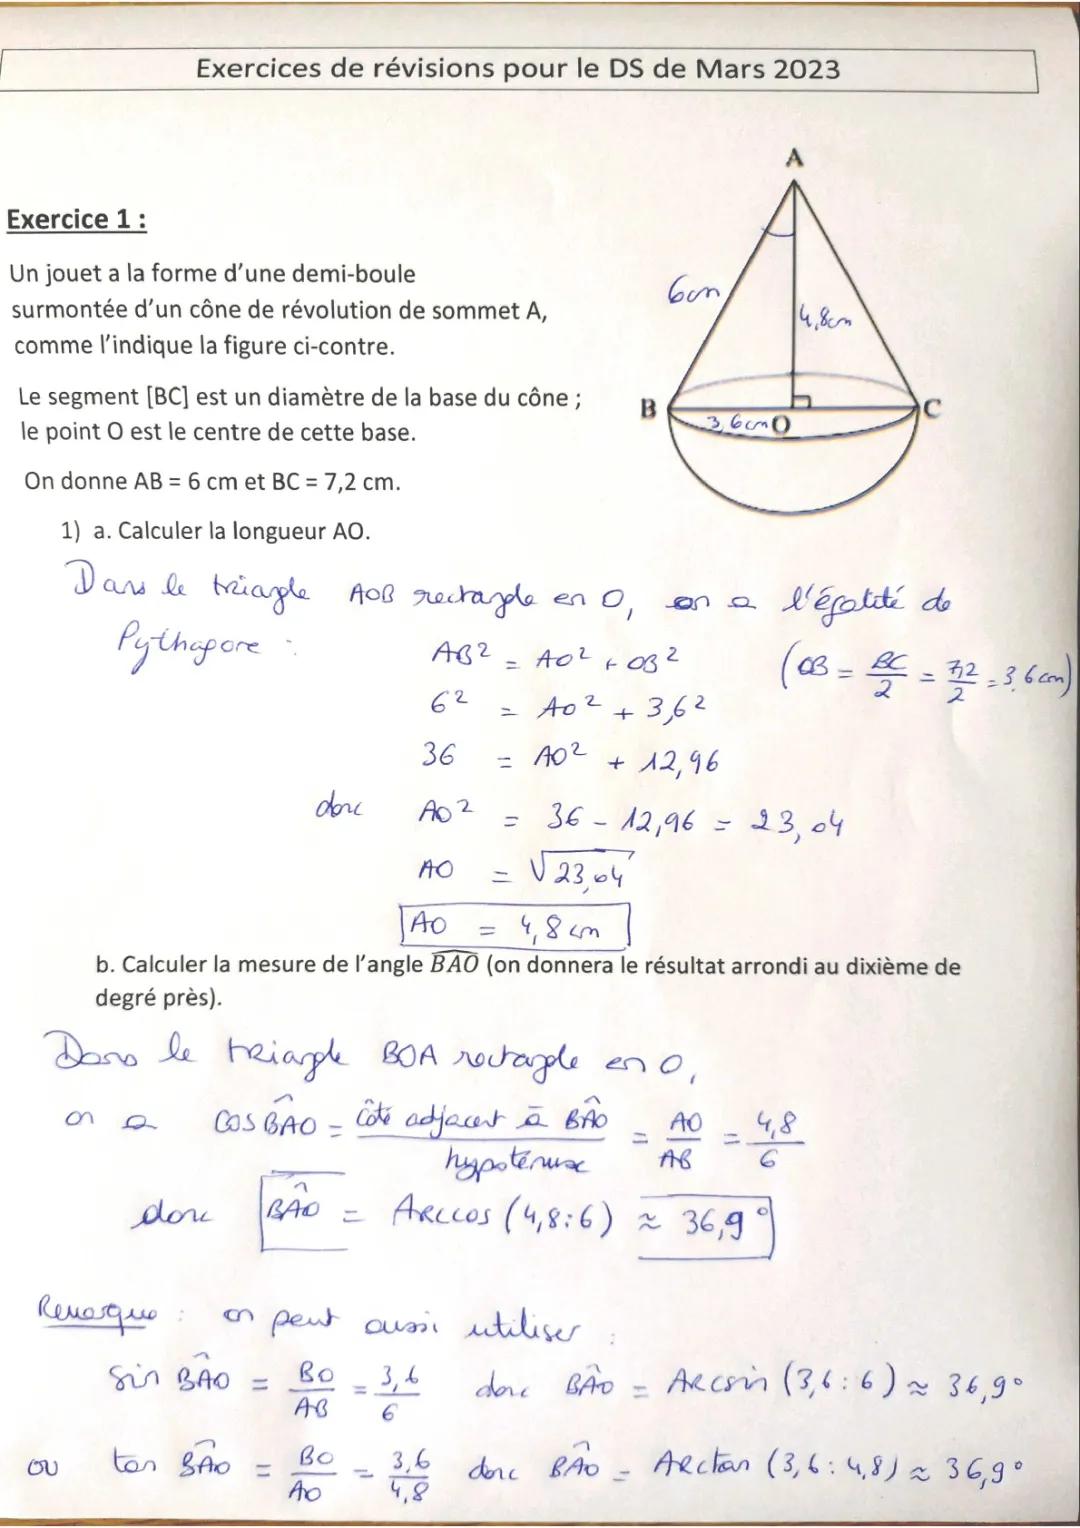 Exercices de révisions pour le DS de Mars 2023
A
Exercice 1 :
Un jouet a la forme d'une demi-boule
surmontée d'un cône de révolution de sommet A,
comme l'indique la figure ci-contre.
6cm
4,8cm
Le segment [BC] est un diamètre de la base du cône ;
le point O est le centre de cette base.
B
C
3,6cm O
On donne AB = 6 cm et BC = 7,2 cm.
1) a. Calculer la longueur AO.
Dans le triangle AOB rectangle en O, on a l'égalité de
Pythagore :
AB² = AO² + OB² (OB = BC/2 = 7,2/2 = 3,6 cm)
6² = AO² + 3,6²
36 = AO² + 12,96
donc AO² = 36 - 12,96 = 23,04
AO = √23,04
AO = 4,8 cm
b. Calculer la mesure de l'angle B̂AO (on donnera le résultat arrondi au dixième de
degré près).
Dans le triangle BOA rectangle en O,
on a cos BÂO = côté adjacent à BÂO / hypoténuse = AO/AB = 4,8/6
donc BÂO = Arccos (4,8:6) ≈ 36,9°
Remarque : on peut aussi utiliser :
sin BÂO = BO/AB = 3,6/6 donc BÂO = Arcsin (3,6:6) ≈ 36,9°
ou tan BÂO = BO/AO = 3,6/4,8 donc BÂO = Arctan (3,6:4,8) ≈ 36,9°